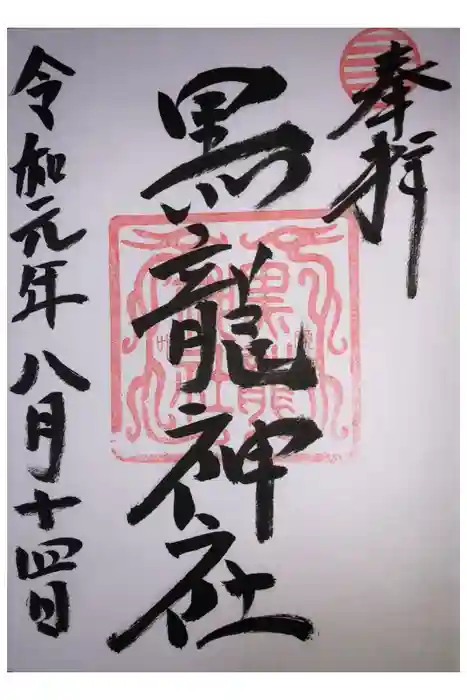 奉拝
黒龍神社
令和元年八月十四日